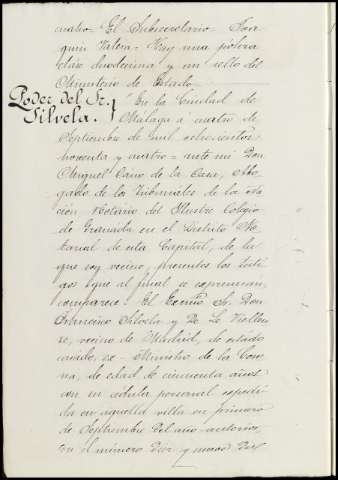 cuatro = El Subsecretario = Joa
quin Valera = Hay una póliza
clase duodecima y un sello del
Ministerio de Estado
Poder del Sr.
Silvela.
En la Ciudad de
Malaga á cuatro de
Septiembre de mil ochocientos
noventa y cuatro = ante mi Don
Miguel Cano de la Casa, Abo
gado de los Tribunales de la Na
ción Notario del Ilustre Colegio
de Granada en el Distrito No
tarial de esta Capital, de la
que soy vecino, presentes los testi
gos que al final se expresaran,
comparece = El Excmo Sr. Don
Francisco Silvela y De Le Vielleu
ze, vecino de Madrid, de estado
casado, ex-Ministro de la Coro
na, de edad de cincuenta años
con su cédula personal expedi
da en aquella villa en primero
de Septiembre del año anterior,
con el número diez y nueve